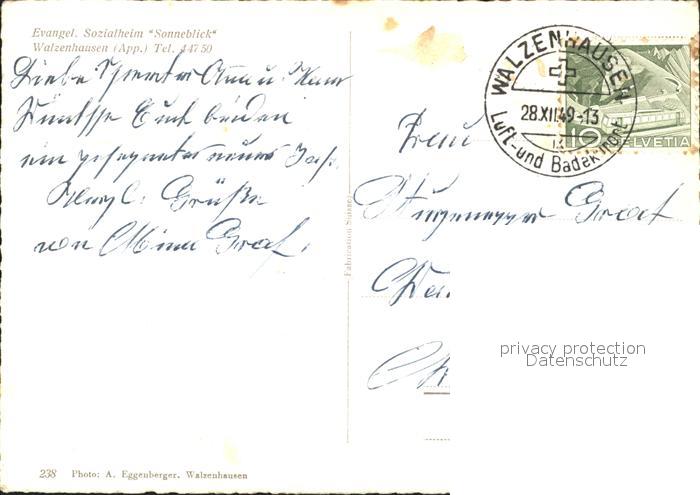 Evangel. Sozialheim "Sonneblick"
Walzenhausen (App.) Tel. 447 50
Liebe Anna u.
Wünsche Euch beiden
ein gesegnetes neues Jahr.
Herzl. Grüße
von Mina Graf.
WALZENHAUSEN
28.XII.49-13
Luft- und Badekurort
10
HELVETIA
Frau
Graf
Fabrication Suisse
privacy protection
Datenschutz
238 Photo: A. Eggenberger, Walzenhausen